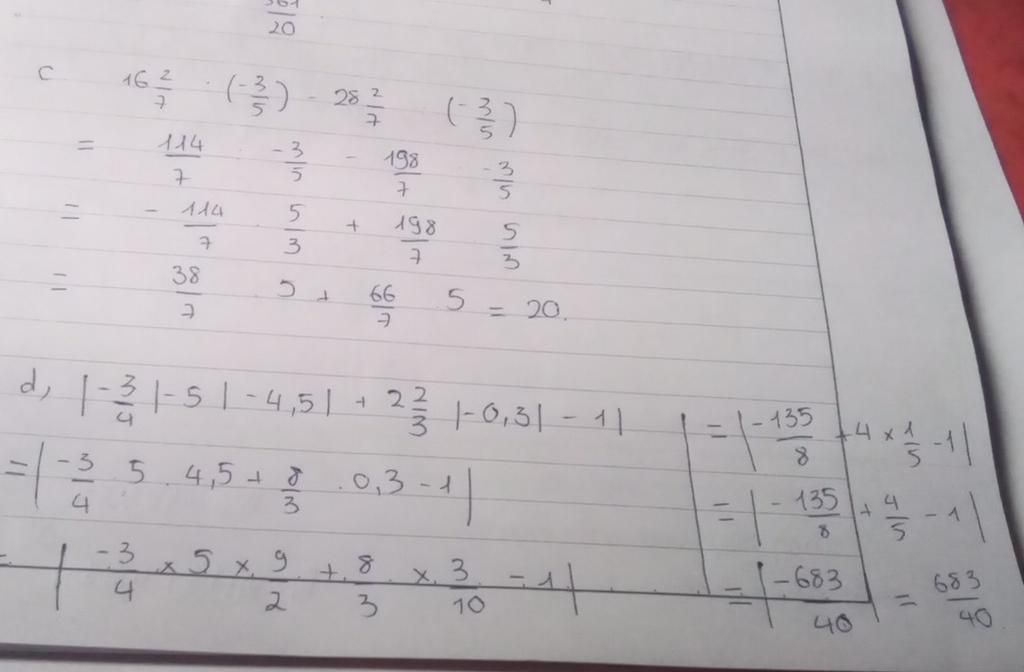 361/20
c 16 2/7 · (-3/5) - 28 2/7 (-3/5)
= 114/7 · -3/5 - 198/7 -3/5
= - 114/7 · 5/3 + 198/7 5/3
= 38/7 · 5 + 66/7 5 = 20.
d, |-3/4 |-5| -4,5| + 2 2/3 |-0,3| - 1|
= |-3/4 5 · 4,5 + 8/3 · 0,3 - 1|
= |-3/4 × 5 × 9/2 + 8/3 × 3/10 - 1|
= |-135/8 + 4 × 1/5 - 1|
= |-135/8 + 4/5 - 1|
= |-683/40| = 683/40